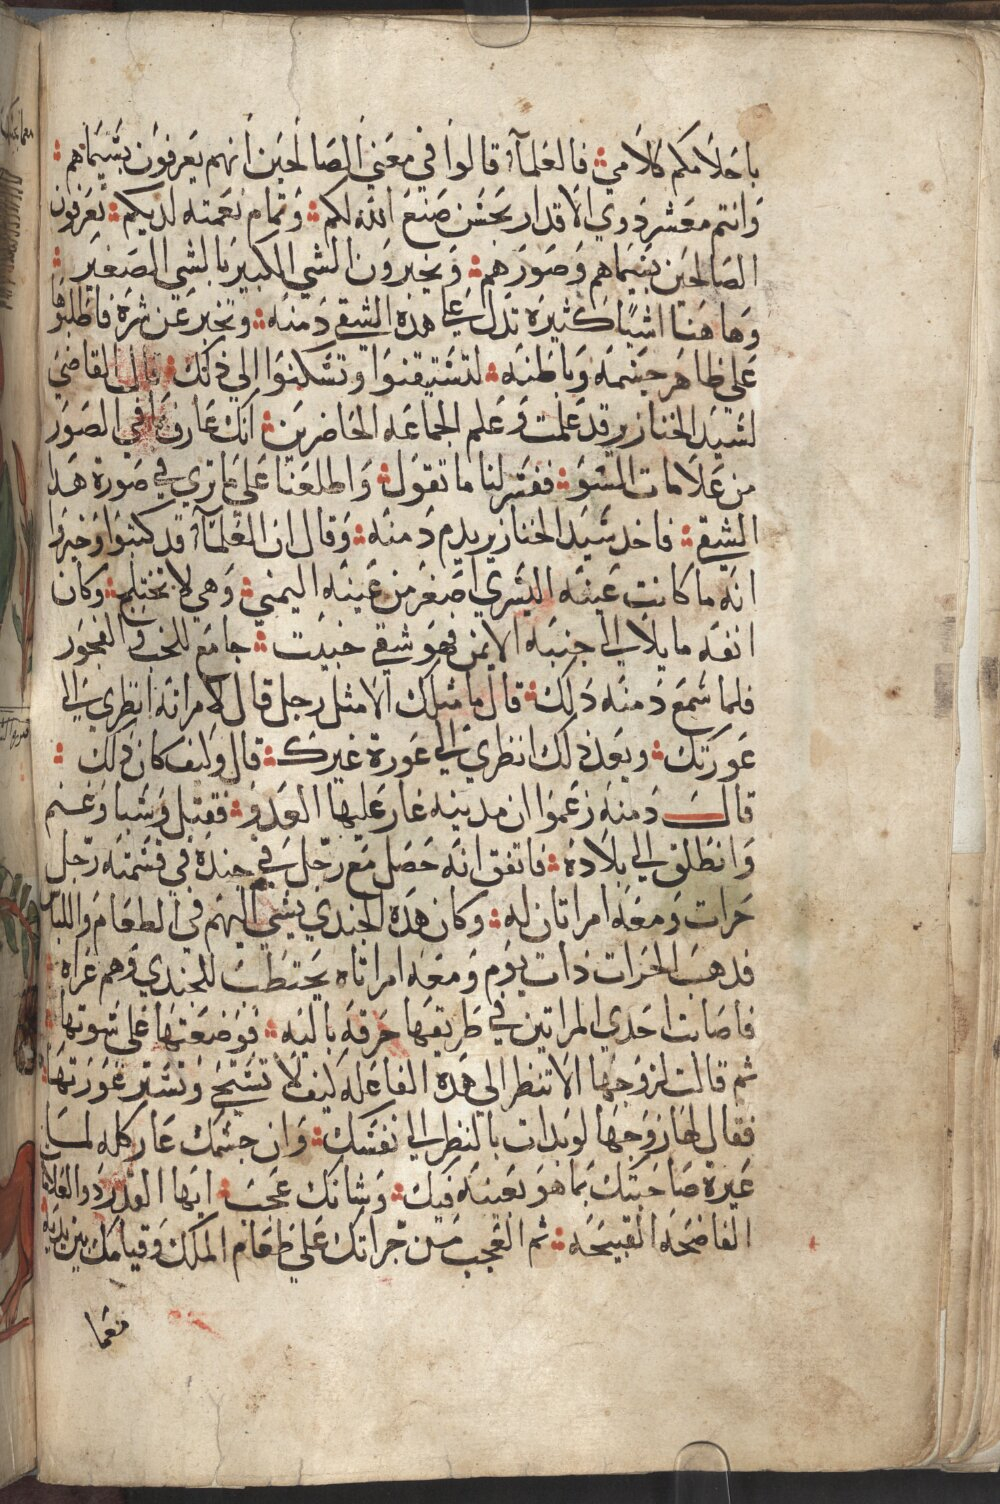 باحلامكم كلامي ؛ فالعلمآء قالوا في معني الصالحين انهم يعرفون بسيماهم ؛
وانتم معشر ذوي الاقدار بحسن صنع الله لكم ؛ وتمام نعمته لديكم ؛ تعرفون
الصالحين بسيماهم وصورهم ؛ وتخبرون الشي الكبير بالشي الصغير ؛
وهاهنا اشيًا كثيرة تدل علي هذه الشقي دمنه ؛ وتخبر عن شره فاطلبوها
علي ظاهر جسمه وباطنه ؛ لتستيقنوا وتسكنوا الي ذلك ؛ قال القاضي
لسيد الخنازير قد علمت وعلم الجماعه الحاضرين ؛ انك عارفا في الصور
من علامات السو ؛ ففسر لنا ما تقول ؛ واطلعنا علي ما تري في صورة هدا
الشقي ؛ فاخد سيد الخنازير يدم دمنه ؛ وقال ان العلمآء قد كتبوا وخبروا
انه ما كانت عينه اليسري اصغر من عينه اليمني ؛ وهي لا تختلج ؛ وكان
انفه مايلا الي جنبه الايمن فهو شقي خبيت ؛ جامع للخب والفجور
فلما سمع دمنه دلك ؛ قال ما مثلك الا مثل رجل قال لامراته انظري الي
عورتك ؛ وبعد ذلك انظري الي عورة غيرك ؛ قال وكيف كان ذلك ؛
قال دمنه زعموا ان مدينه غار عليها العدو ؛ فقتل وسبا وغنم
وانطلق الي بلاده ؛ فاتفق انه حصل مع رجل في جنده في قسمته رجل
حرات ومعه امراتان له ؛ وكان هذه الجندي يسي اليهم في الطعام واللباس
فدهب الحرات ذات يوم ومعه امراتاه يحتطب للجندي وهم عراه ؛
فاصابت احدي المراتين في طريقها خرقه باليه ؛ فوضعتها علي سوتها ؛
ثم قالت لزوجها الا تنظر الي هذه الفاعله كيف لا تستحي وتستر عورتها ؛
فقال لها زوجها لو بدات بالنظر الي نفسك ؛ وان جسمك عار كله لما
عيرة صاحبتك بما هو بعينه فيك ؛ وشانك عجب ؛ ايها القدر ذو العلامه
الفاضحه القبيحه ؛ ثم العجب من جراتك علي طعام الملك وقيامك بين يديه
معما